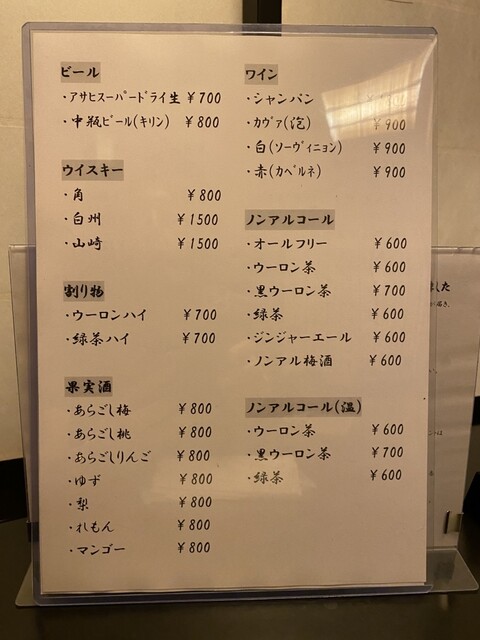 ビール
・アサヒスーパードライ生 ¥700
・中瓶ビール(キリン) ¥800
ウイスキー
・角 ¥800
・白州 ¥1500
・山崎 ¥1500
割り物
・ウーロンハイ ¥700
・緑茶ハイ ¥700
果実酒
・あらごし梅 ¥800
・あらごし桃 ¥800
・あらごしりんご ¥800
・ゆず ¥800
・梨 ¥800
・れもん ¥800
・マンゴー ¥800
ワイン
・シャンパン
・カヴァ(泡) ¥900
・白(ソーヴィニョン) ¥900
・赤(カベルネ) ¥900
ノンアルコール
・オールフリー ¥600
・ウーロン茶 ¥600
・黒ウーロン茶 ¥700
・緑茶 ¥600
・ジンジャーエール ¥600
・ノンアル梅酒 ¥600
ノンアルコール(温)
・ウーロン茶 ¥600
・黒ウーロン茶 ¥700
・緑茶 ¥600